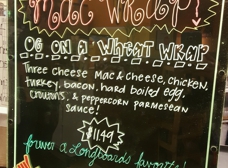 Mac Wrap!
on a Wheat Wrap
Three cheese Mac & cheese, chicken,
turkey, bacon, hard boiled egg,
croutons, & peppercorn parmesean
sauce!
$11.49
Longboards favorite!